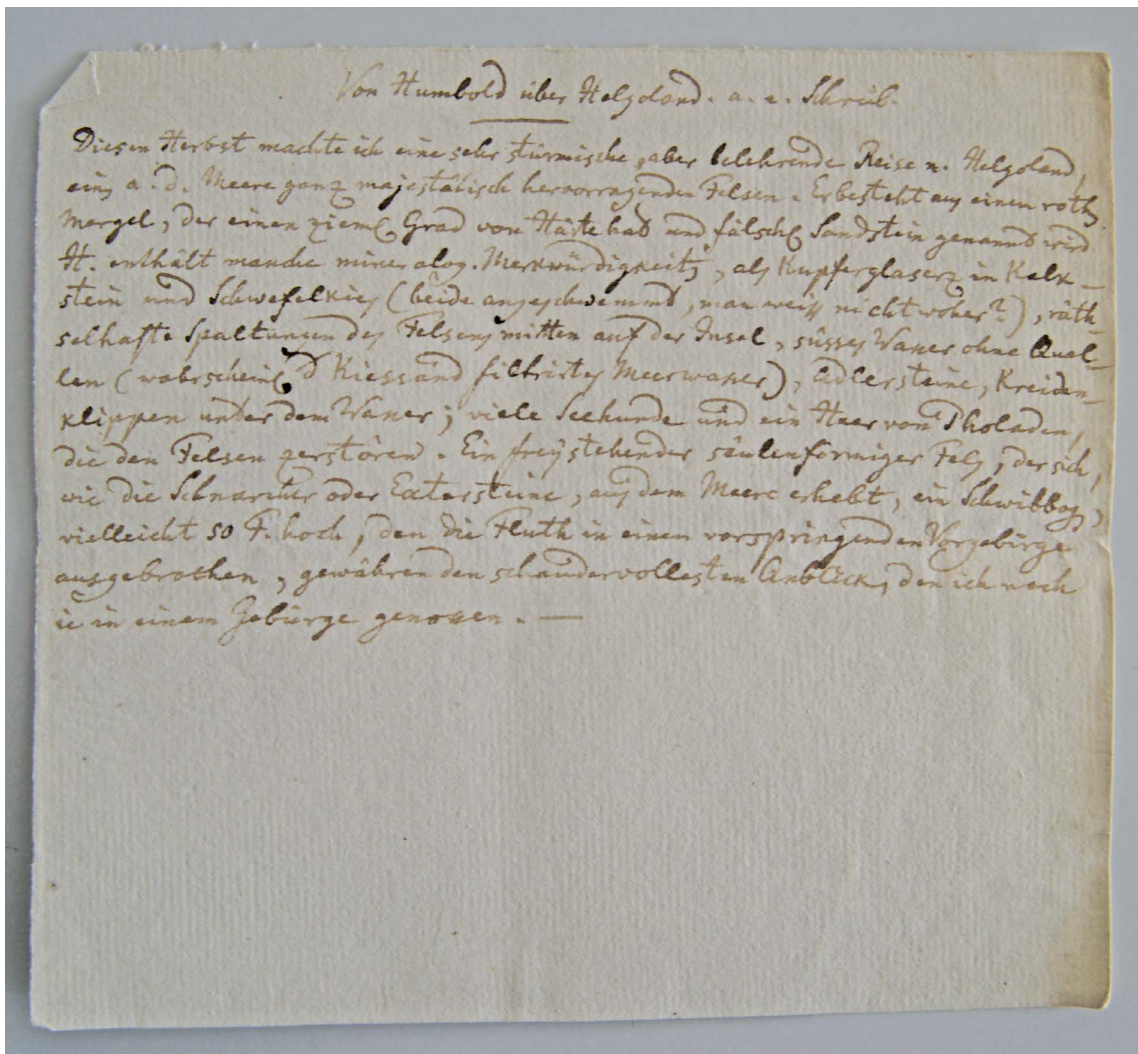 Von Humbold über Helgoland. a. e. Schreib.
Diesen Herbst machte ich eine sehr stürmische, aber belehrende Reise n. Helgoland,
eines a. d. Meere ganz majestätisch hervorragenden Felsen. Er besteht aus einem roth
Mergel, der einen zieml Grad von Häste hat und fälschl Sandstein genannt wird
H. enthält manche mineralog. Merkwürdigkeiten, als Kupferglaserz in Kalk-
stein und Schwefelkies (beide angeschwemmt, man weiss nicht woher?), räth-
selhafte Spaltungen des Felsens mitten auf der Insel, süsses Wasser ohne Quel-
len (wahrscheinl d Kiessand filtrirtes Meerwasser), Adlersteine, Kreiden-
klippen unter dem Wasser; viele Seehunde und ein Heer von Pholaden,
die den Felsen zerstören. Ein freystehender säulenförmiger Fels, der sich,
wie die Schnarcher oder Extersteine, aus dem Meere erhebt, ein Schwibbog,
vielleicht 50 F. hoch, den die Fluth in einem vorspringenden Vorgebirge
ausgebrochen, gewähren den schaudervollesten Anblick, den ich noch
ie in einem Gebürge genossen. —